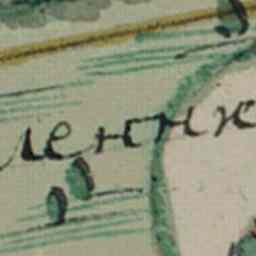 ленник